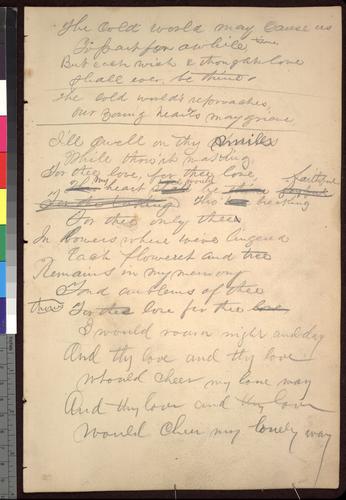 The Cold world may cause us
To part for awhile
But each wish & thought love
Shall ever be thine
The cold world's reproaches
Our loving hearts may grieve
I'll dwell on thy smiles
While thou'rt
For thee love, for thee love,
my heart faithful
Tho breaking
For thee only thee
In bowers where we've lingered
Each floweret and tree
Remains in my memory
Fond emblems of thee
For thee love for thee love
I would roam night and day
And thy love and thy love
Would cheer my lone way
And thy love and thy love
Would cheer my lonely way